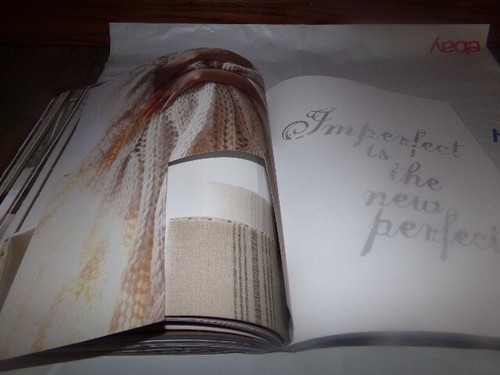 ebay
Imperfect
is the
new
perfect